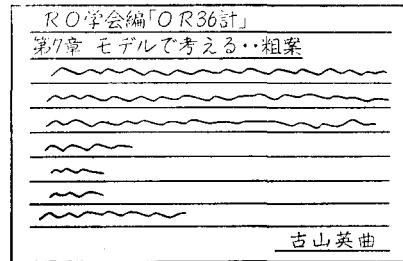 RO学会編「OR36計」
第7章 モデルで考える‥粗案
古山英曲